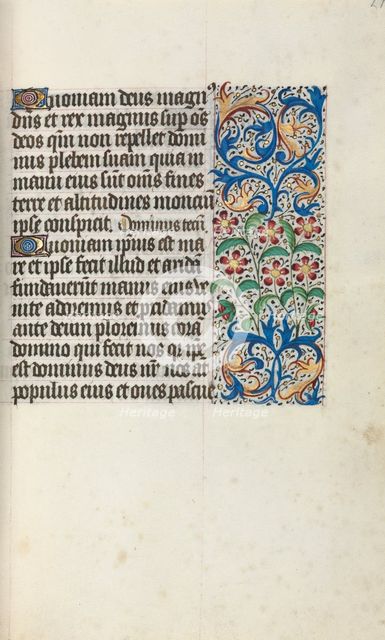 Quoniam deus magn
dñs et rex magnus sup os
deos qm̄ non repellet domi
nus plebem suam quia in
manu eius sūt om̄s fines
terre et altitudines montiū
ipse conspicit. Dominus tecū.
Quoniam ipsius est ma
re et ipse fecit illud et arida
fundauerūt manus eius ve
nite adoremus et procidam9
ante deum ploremus corā
domino qui fecit nos qr ipe
est dominus deus nr̄ nos aūt
populus eius et oues pascue
Heritage
Heritage